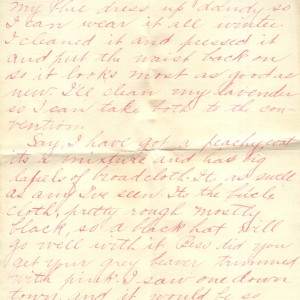 my blue dress up dandy so
I can wear it all winter
I cleaned it and pressed it
and put the waist back on
so it looks most as good as
new. I'll clean my lavender
so I can take both to the con-
vention.
Say, I have got a peachy coat
its a mixture and has big
lapels of broadcloth. It is swell
as any I've seen. Its the
cloth, pretty rough mostly
black, so a black hat will
go well with it. Bess did you
get your grey beaver trimmed
with pink. I saw one down
town and it would be so